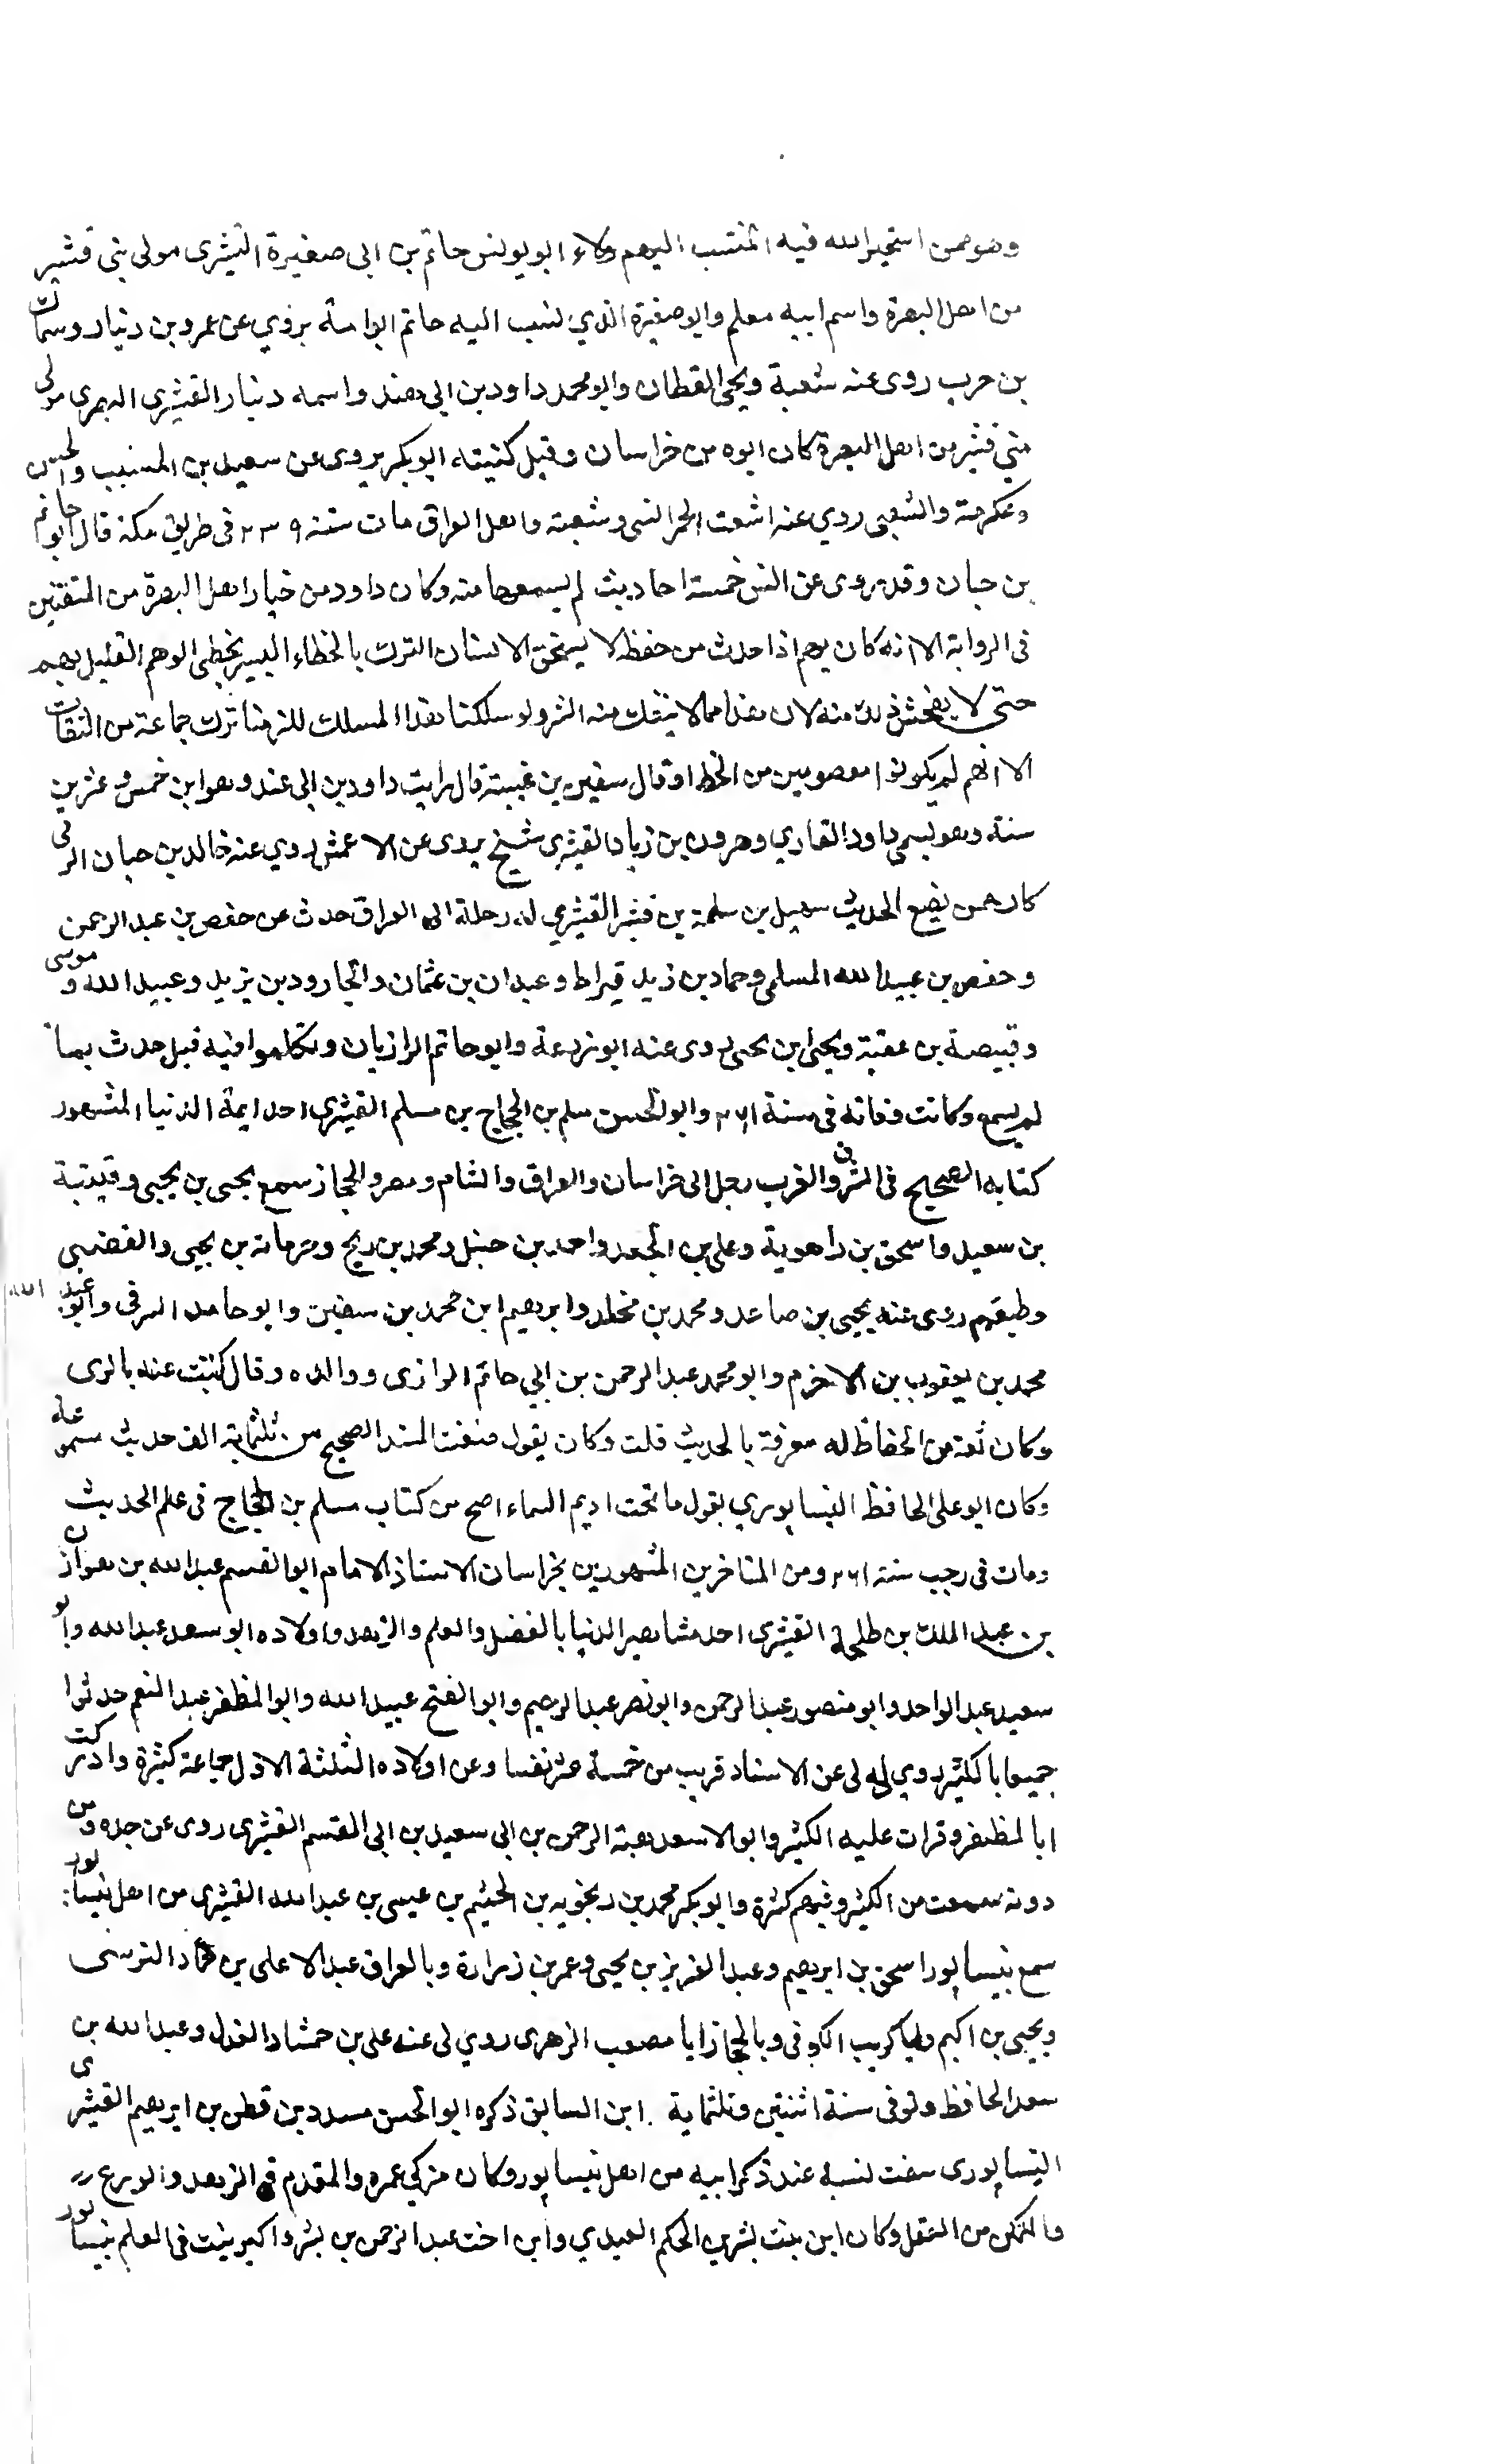 وهو ممن استخير الله فيه المنتسب اليهم ولاء ابو يونس حاتم بن ابى صغيرة القشيرى مولى بنى قشير
من اهل البصرة واسم ابيه مسلم وابو صغيرة الذي نسب اليه حاتم ابو امه يروي عن عمرو بن دينار وسماك
بن حرب روى عنه شعبة ويحيى القطان وابو محمد داود بن ابى هند واسمه دينار القشيرى البصرى مولى
بني قشير من اهل البصرة كان ابوه من خراسان وقيل كنيته ابو بكر يروى عن سعيد بن المسيب والحسن
وعكرمة والشعبى روي عنه اشعث الحمرانى وشعبة واهل العراق مات سنة ١٣٩ فى طريق مكة قال ابو حاتم
بن حبان وقد روى عن انس خمسة احاديث لم يسمعها منه وكان داود من خيار اهل البصرة من المتقنين
فى الرواية الا انه كان يهم اذا حدث من حفظه لا يستحق الانسان الترك بالخطاء اليسير يخطى الوهم القليل يهم
حتى لا يفحش ذلك منه لان هذا مما لا ينفك منه البشر ولو سلكنا هذا المسلك للزمنا ترك جماعة من الثقات
الا انهم لم يكونوا معصومين من الخطا وقال سفين بن عيينة قال رايت داود بن ابى هند وهو ابن خمس وعشرين
سنة وهو يسمى داود القاري وهرون بن زياد القشيرى شيخ يروى عن الاعمش روي عنه خالد بن حبان الرقى
كان ممن يضع الحديث سهيل بن سلمة بن قشير القشيرى له رحلة الى العراق حدث عن حفص بن عبد الرحمن
وحفص بن عبد الله السلمى وحماد بن زيد قيراط وعبدان بن عثمان والجارود بن يزيد وعبيد الله و موسى
وقبيصة بن عقبة ويحيى ابن يحيى روى عنه ابو زرعة وابو حاتم الرازيان وتكلموا فيه قيل حدث بما
لم يسمع وكانت وفاته فى سنة ٢٦١ وابو الحسن مسلم بن الحجاج بن مسلم القشيرى احد ايمة الدنيا المشهور
كتابه الصحيح فى الشرق والغرب رحل الى خراسان والعراق والشام ومصر والحجاز سمع يحيى بن يحيى وقتيبة
بن سعيد واسحق بن راهوية وعلي بن الجعد واحمد بن حنبل ومحمد بن رمح وحرملة بن يحيى والقعنبى
وطبقتهم روى عنه يحيى بن صاعد ومحمد بن مخلد وابرهيم ابن محمد بن سفين وابو حامد الشرقى وابو عبد الله
محمد بن يعقوب بن الاخرم وابو محمد عبد الرحمن بن ابي حاتم الرازى ووالده وقال كتبت عنه بالرى
وكان ثقة من الحفاظ له معرفة بالحديث قلت وكان يقول صنفت المسند الصحيح من ثلثماية الف حديث مسموعة
وكان ابو على الحافظ النيسابوري يقول ما تحت اديم السماء اصح من كتاب مسلم بن الحجاج فى علم الحديث
ومات فى رجب سنة ٢٦١ ومن المتاخرين المشهورين بخراسان الاستاذ الامام ابو القسم عبد الله بن هوازن
بن عبد الملك بن طلحة القشيرى احد مشاهير الدنيا بالفضل والعلم والزهد واولاده ابو سعد عبد الله وابو
سعيد عبد الواحد وابو منصور عبد الرحمن وابو نصر عبد الرحيم وابو الفتح عبيد الله وابو المظفر عبد المنعم حدثوا
جميعا بالكثير روي لى عن الاستاذ قريب من خمسة عشر نفسا وعن اولاده الثلثة الاول جماعة كثيرة وادركت
ابا المظفر وقرات عليه الكثير وابو الاسعد هبة الرحمن بن ابى سعيد بن ابى القسم القشيرى روى عن جده ومن
دونه سمعت من الكثير وفيهم كثرة وابو بكر محمد بن زنجويه بن الهيثم بن عيسى بن عبد الله القشيرى من اهل نيسابور
سمع بنيسابور اسحق بن ابرهيم وعبد العزيز بن يحيى وعمر بن زرارة وبالعراق عبد الاعلى بن حماد النرسى
ويحيى بن اكثم وابا كريب الكوفى وبالحجاز ابا مصعب الزهرى روي لى عنه على بن حمشاد العدل وعبد الله بن
سعد الحافظ وتوفى سنة اثنتين وثلثماية ابن السابق ذكره ابو الحسن مسدد بن قطن بن ابرهيم القشيرى
النيسابورى سقت نسبه عند ذكر ابيه من اهل نيسابور وكان مزكى عصره والمقدم فى الزهد والورع
والتمكن من العقل وكان ابن بنت بشر بن الحكم العبدي وابن اخت عبد الرحمن بن بشر واكبر بيت فى العلم بنيسابور